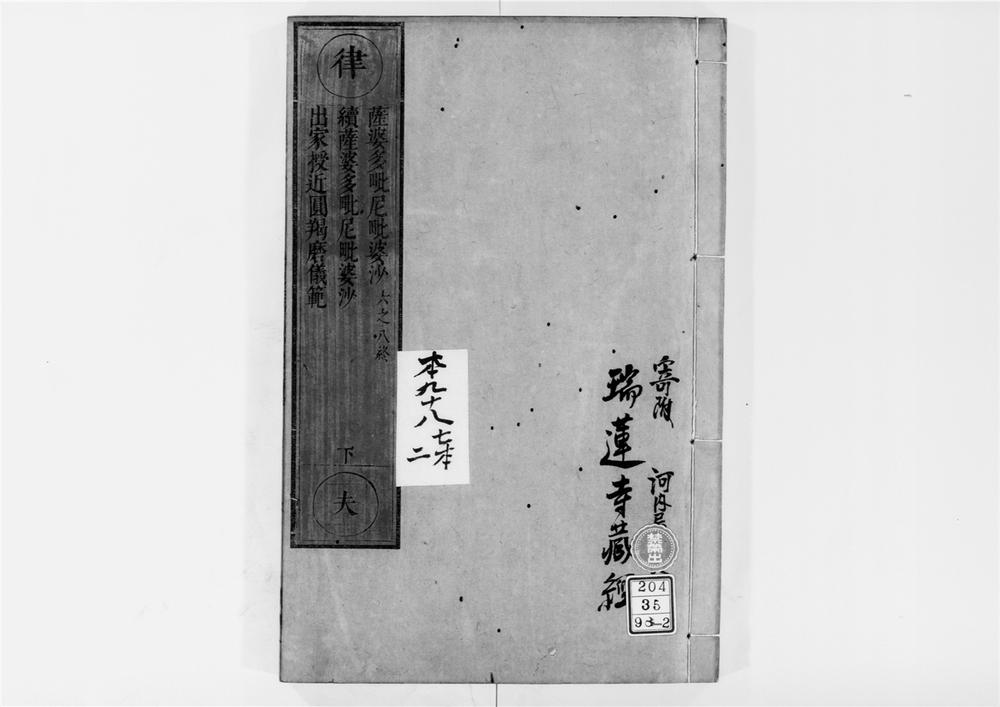 寄附
河内
瑞蓮寺藏經
禁出
204
35
98-2
本九十八
七本
二
律
薩婆多毗尼毗婆沙 六之八終
續薩婆多毗尼毗婆沙
出家授近圓羯磨儀範
下
夫